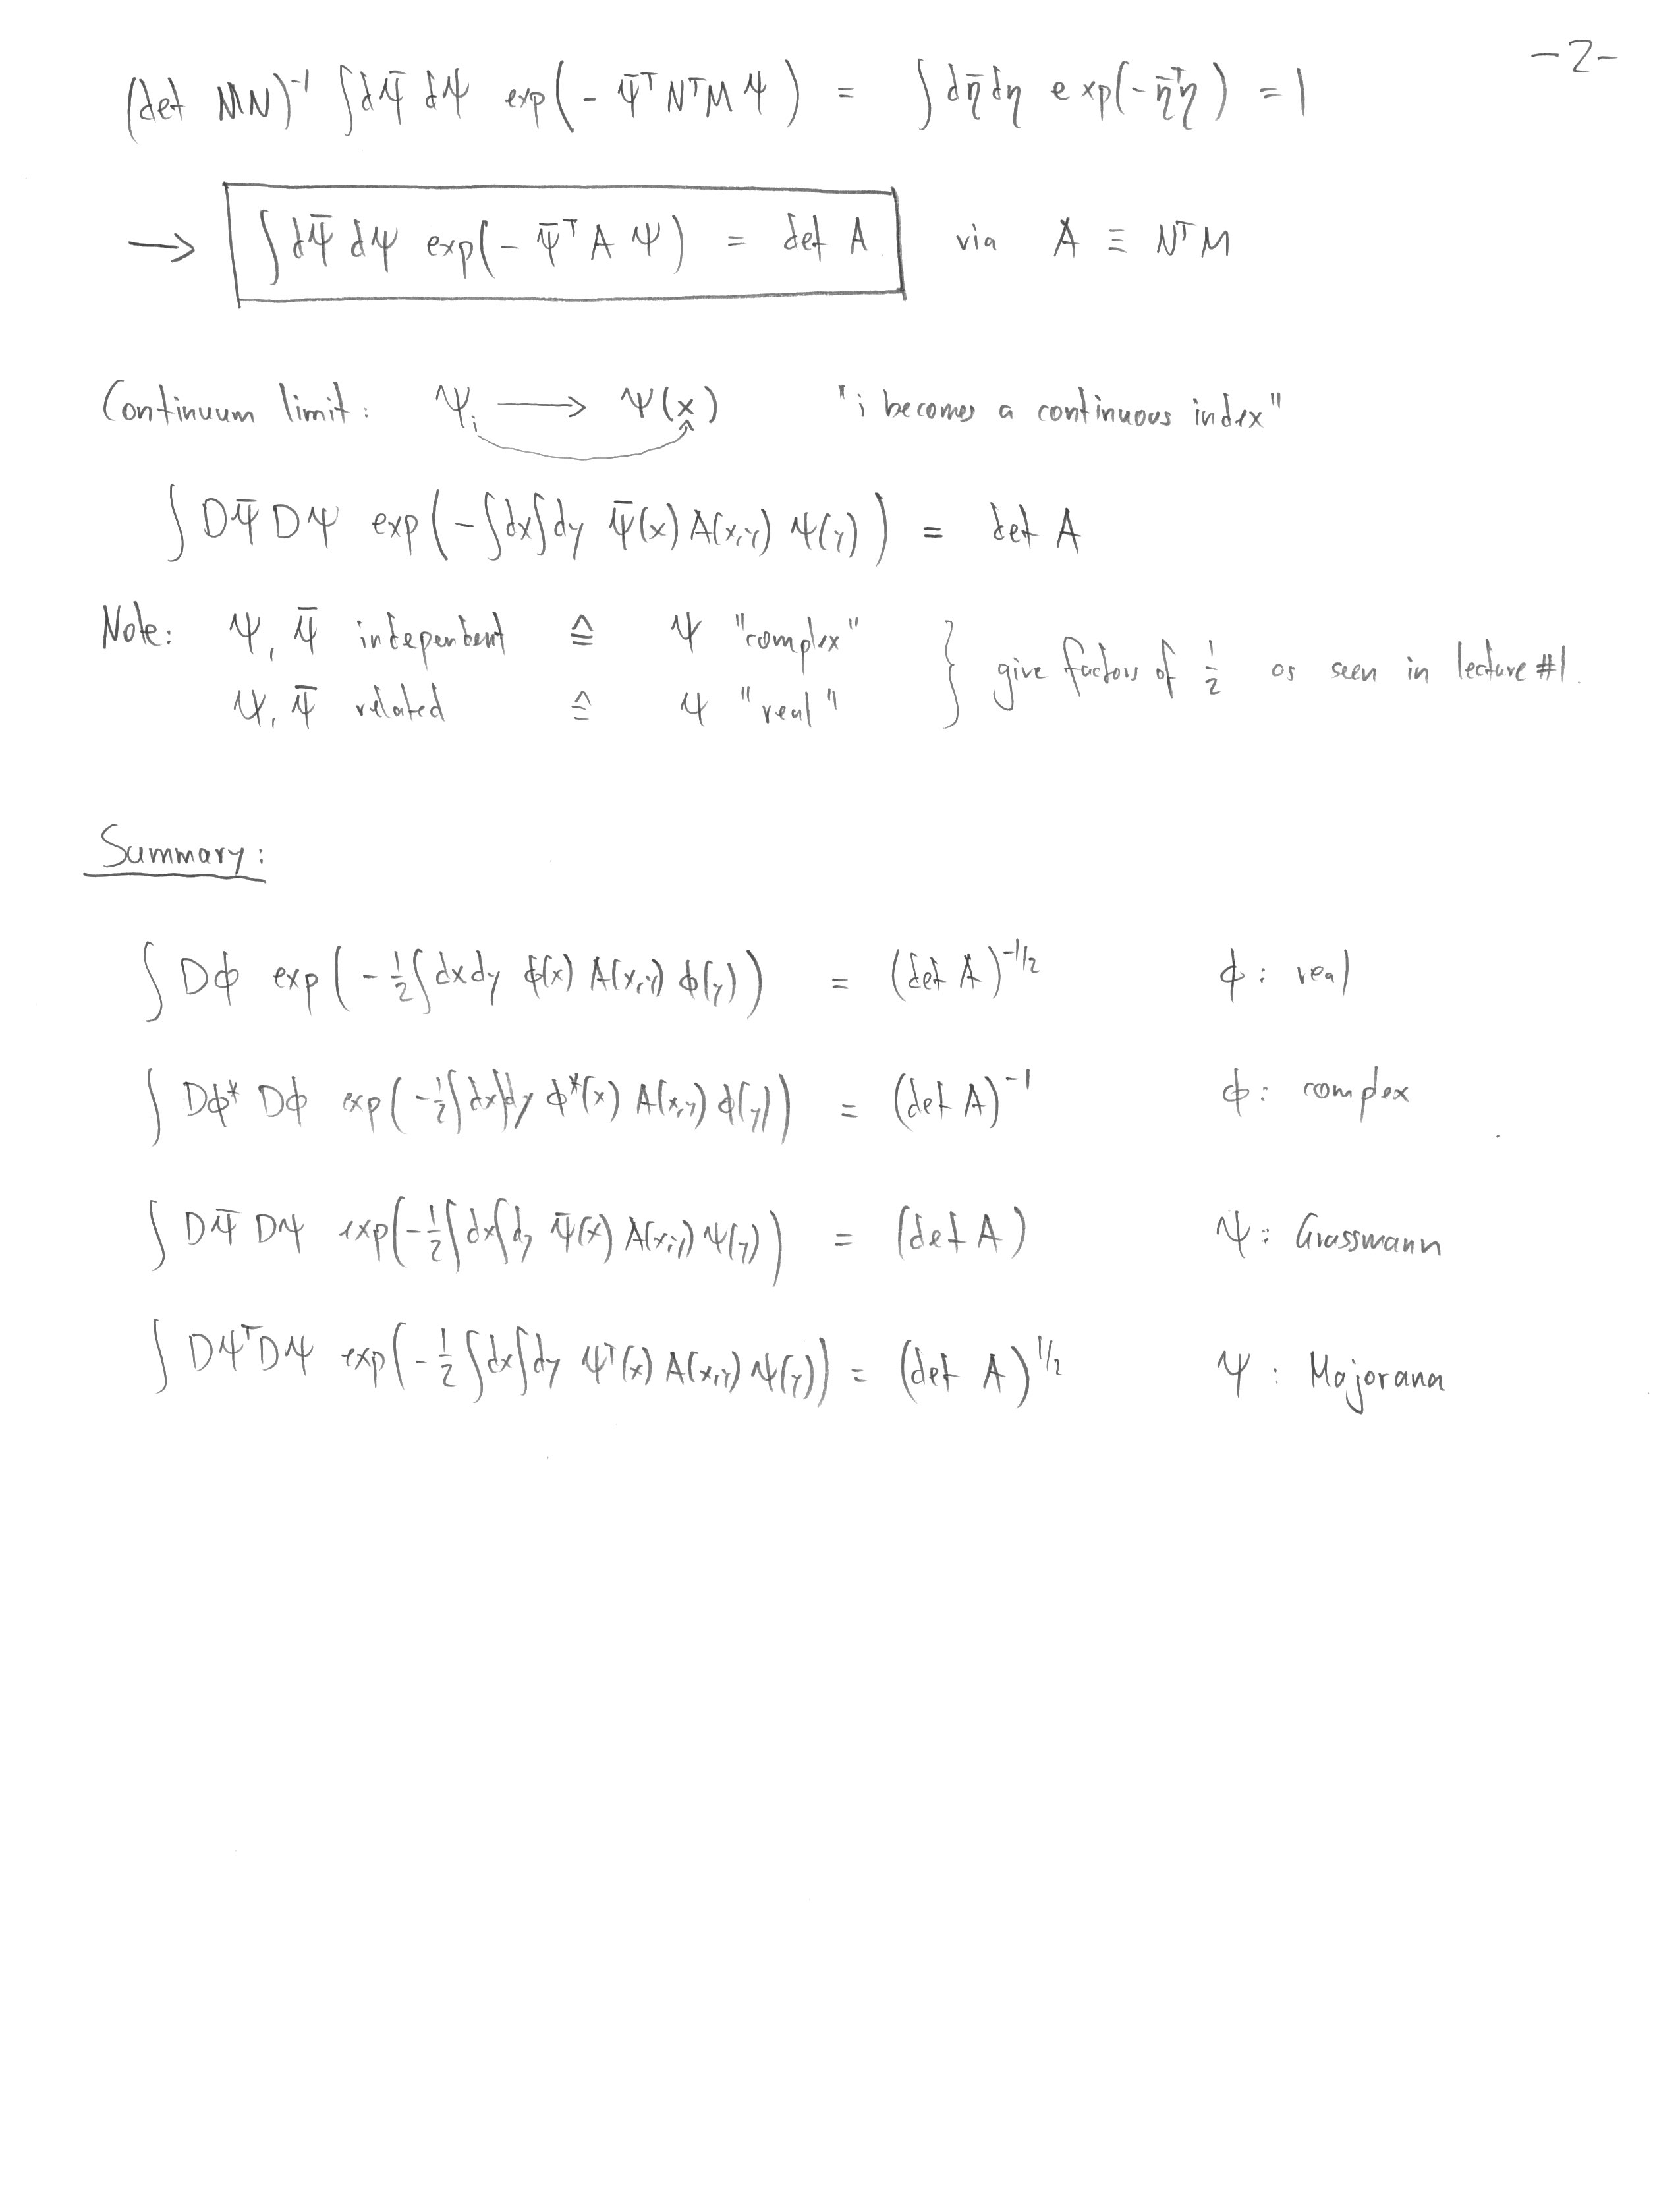 -2-
(det MN)⁻¹ ∫dψ̄ dψ exp(- ψ̄ᵀNᵀMψ) = ∫dη̄dη exp(-η̄ᵀη) = 1
→ ∫dψ̄ dψ exp(- ψ̄ᵀ A ψ) = det A via A ≡ NᵀM
Continuum limit: ψᵢ → ψ(x) "i becomes a continuous index"
∫ Dψ̄ Dψ exp(-∫dx∫dy ψ̄(x) A(x,y) ψ(y)) = det A
Note: ψ, ψ̄ independent ≙ ψ "complex" } give factors of 1/2 as seen in lecture #1.
ψ, ψ̄ related ≙ ψ "real"
Summary:
∫ Dϕ exp(-1/2∫dxdy ϕ(x) A(x,y) ϕ(y)) = (det A)^-1/2 ϕ: real
∫ Dϕ* Dϕ exp(-1/2∫dx∫dy ϕ*(x) A(x,y) ϕ(y)) = (det A)⁻¹ ϕ: complex
∫ Dψ̄ Dψ exp(-1/2∫dx∫dy ψ̄(x) A(x,y) ψ(y)) = (det A) ψ: Grassmann
∫ DψᵀDψ exp(-1/2∫dx∫dy ψᵀ(x) A(x,y) ψ(y)) = (det A)^1/2 ψ: Majorana